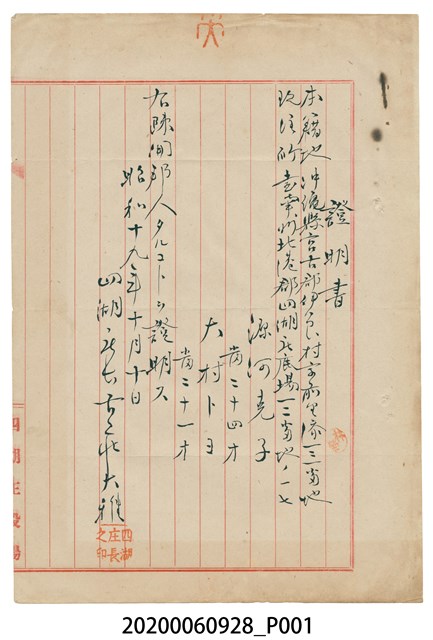 證明書
本籍地 沖繩縣宮古郡伊良部村字前里添一三番地
現住所 臺南州北港郡四湖庄底場一二番地ノ一七
源河克子
當二十四才
大村トヨ
當二十一才
右內鄰人タルコトヲ證明ス
昭和十九年十月十日
四湖庄長 大雅
四湖庄長之印
四湖庄役場
20200060928_P001